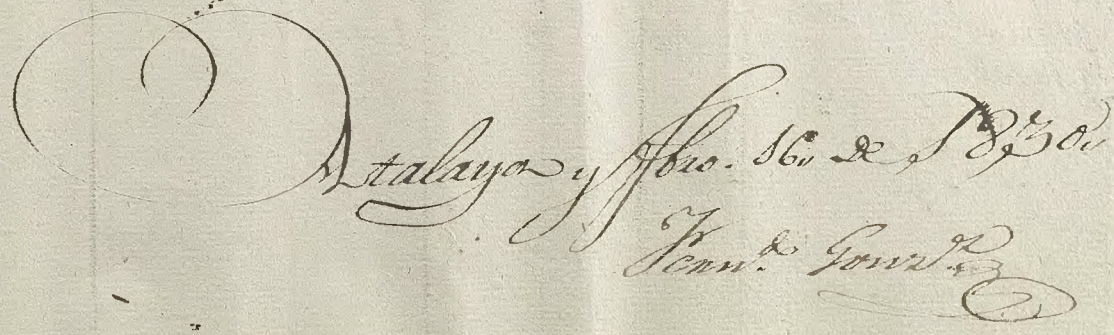 Atalaya y Fbro. 16,, de 1830,,
Fernd.º Gonz.z